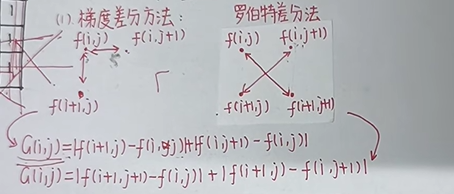 (1). 梯度差分方法：
罗伯特差分法
f(i,j) f(i,j+1)
f(i+1,j)
f(i,j) f(i,j+1)
f(i+1,j) f(i+1,j+1)
G(i,j)=|f(i+1,j)-f(i,j)|+|f(i,j+1)-f(i,j)|
G(i,j)=|f(i+1,j+1)-f(i,j)|+|f(i+1,j)-f(i,j+1)|